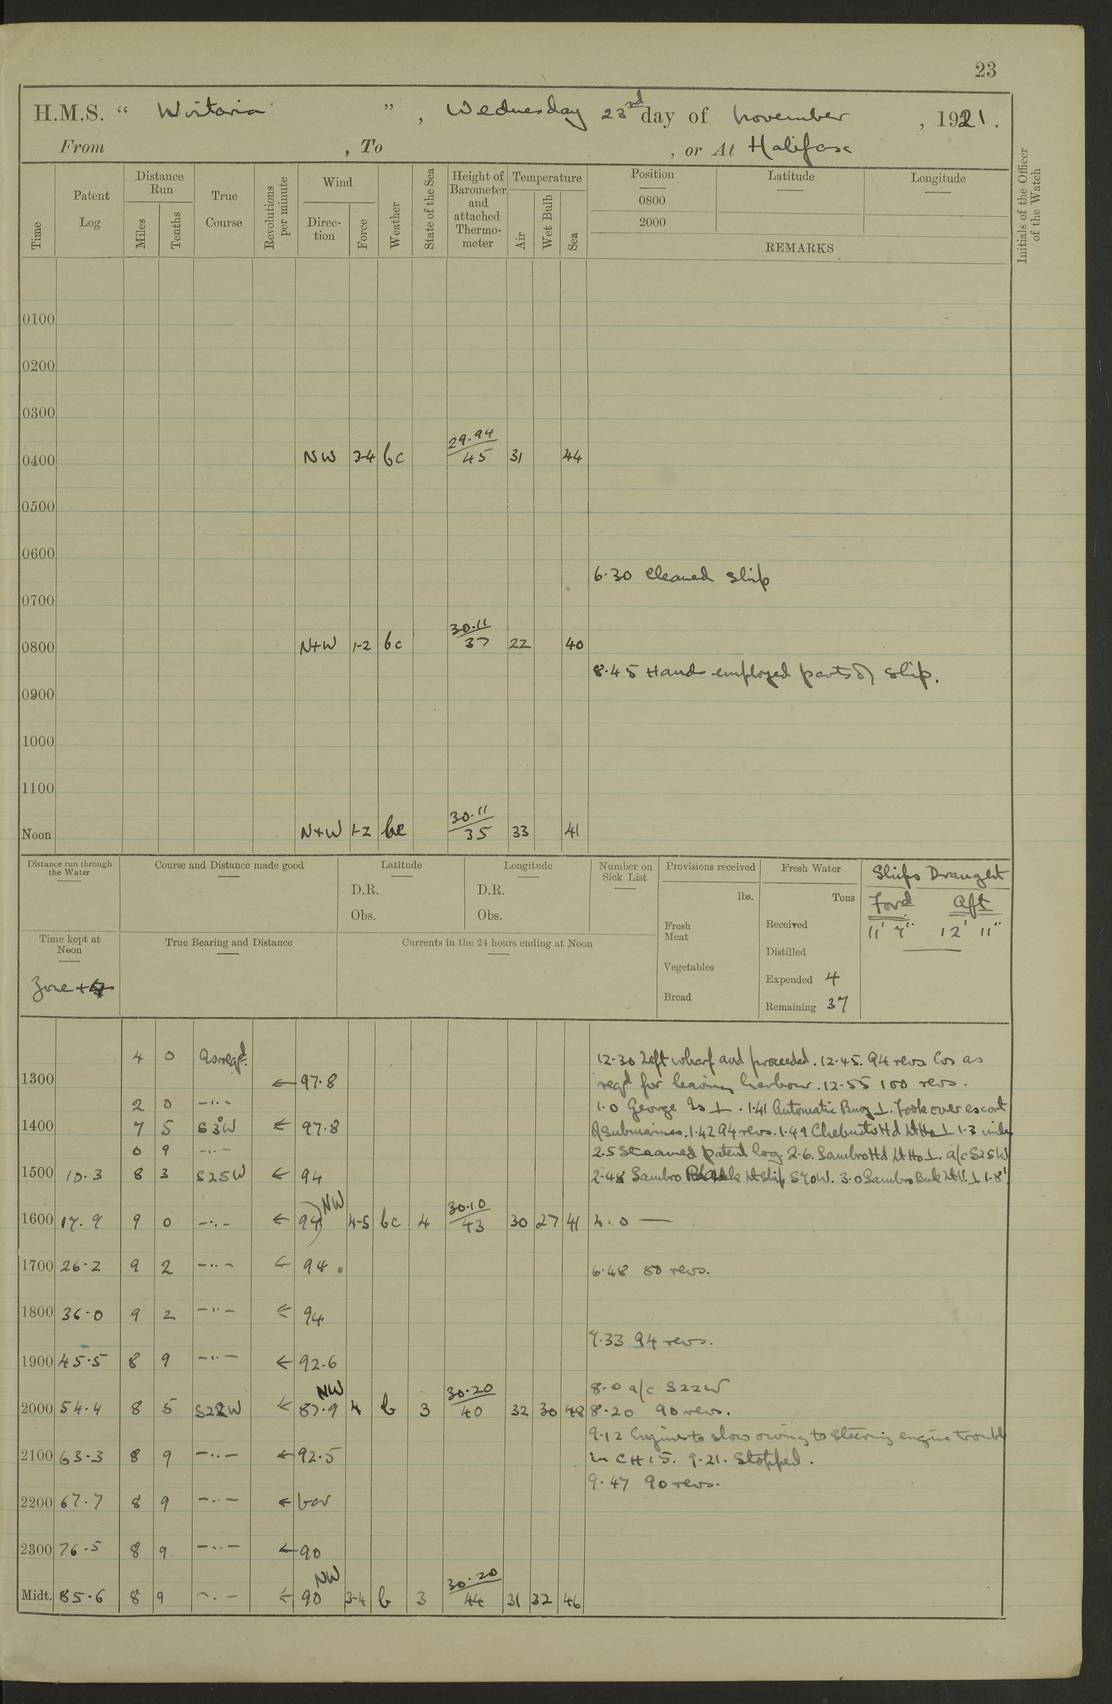 23
H.M.S. “ Wistaria ” , Wednesday 23rd day of November , 1921.
From , To , or At Halifax
Time Patent Log Distance Run Miles Tenths True Course Revolutions per minute Wind Direction Force Weather State of the Sea Height of Barometer and attached Thermometer Temperature Air Wet Bulb Sea Position Latitude Longitude Initials of the Officer of the Watch
0800
2000
REMARKS
0100
0200
0300
0400 NW 3-4 bc 29.94 45 31 44
0500
0600
6.30 Cleaned ship
0700
0800 N+W 1-2 bc 30.11 37 22 40
8.45 Hands employed parts of ship.
0900
1000
1100
Noon N+W 1-2 bc 30.11 35 33 41
Distance run through the Water Course and Distance made good Latitude Longitude Number on Sick List Provisions received Fresh Water Ships Draught
D.R. D.R. lbs. Tons Ford Aft
Obs. Obs. Fresh Meat Received 11' 7" 12' 11"
Time kept at Noon True Bearing and Distance Currents in the 24 hours ending at Noon Distilled
Vegetables
Zone +4 Expended 4
Bread Remaining 37
4 0 As reqd. 12.30 Left wharf and proceeded. 12.45. 94 revs Cos as
1300 ← 97.8 reqd for leaving harbour. 12.55 100 revs.
2 0 -..- 1.0 George Is ⊥. 1.41 Automatic Buoy ⊥. Took over escort
1400 7 5 S3°W ← 97.8 of Submarines. 1.42 94 revs. 1.49 Chebucto Hd Lt Ho ⊥ 1.3 miles
0 9 -..- 2.5 Streamed patent log 2.6. Sambro Hd Lt Ho ⊥. a/c S25W
1500 10.3 8 3 S25W ← 94 2.48 Sambro Bank Lt Ship S70W. 3.0 Sambro Bnk Lt V. ⊥ 1.8'
1600 17.9 9 0 -..- ← 94 NW 4-5 bc 4 30.10 43 30 27 41 4.0 —
1700 26.2 9 2 -..- ← 94 .
6.48 80 revs.
1800 36.0 9 2 -..- ← 94
7.33 94 revs.
1900 45.5 8 9 -..- ← 92.6
8.0 a/c S22W
2000 54.4 8 5 S22W ← 87.9 NW 4 b 3 30.20 40 32 30 48 8.20 90 revs.
9.12 Engines to slow owing to steering engine trouble
2100 63.3 8 9 -..- ← 92.5 in CH 15. 9.21. Stopped.
9.47 90 revs.
2200 67.7 8 9 -..- ← var
2300 76.5 8 9 -..- ← 90
Midt. 85.6 8 9 -..- ← 90 NW 3-4 b 3 30.20 44 31 32 46